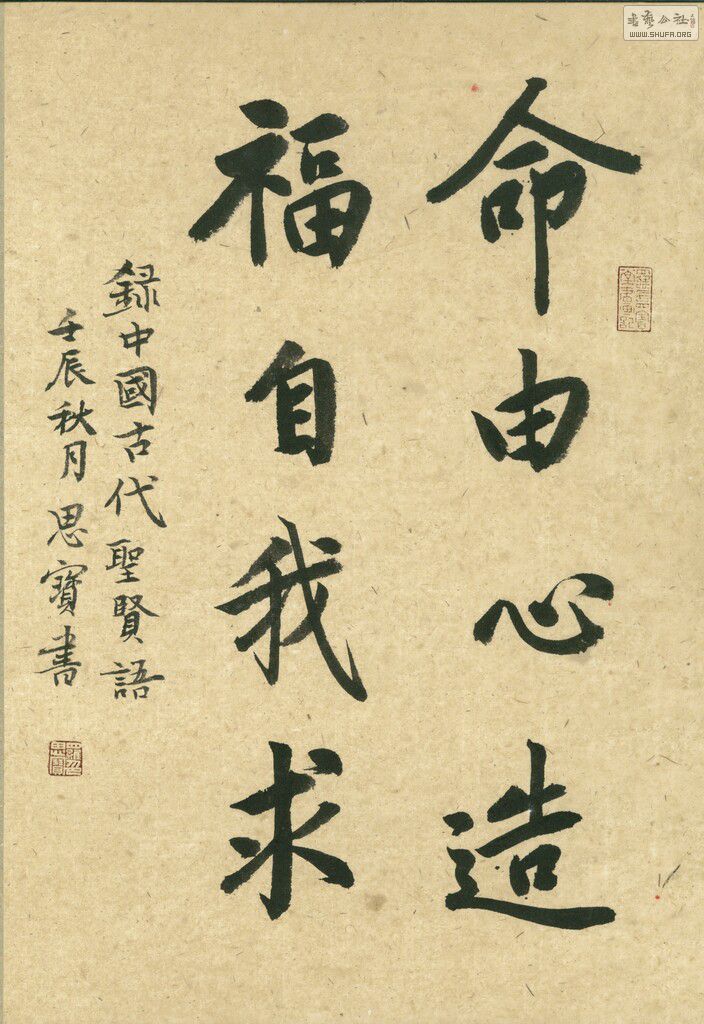 命由心造
福自我求
録中國古代聖賢語
壬辰秋月思寶書
書藝公社
WWW.SHUFA.ORG